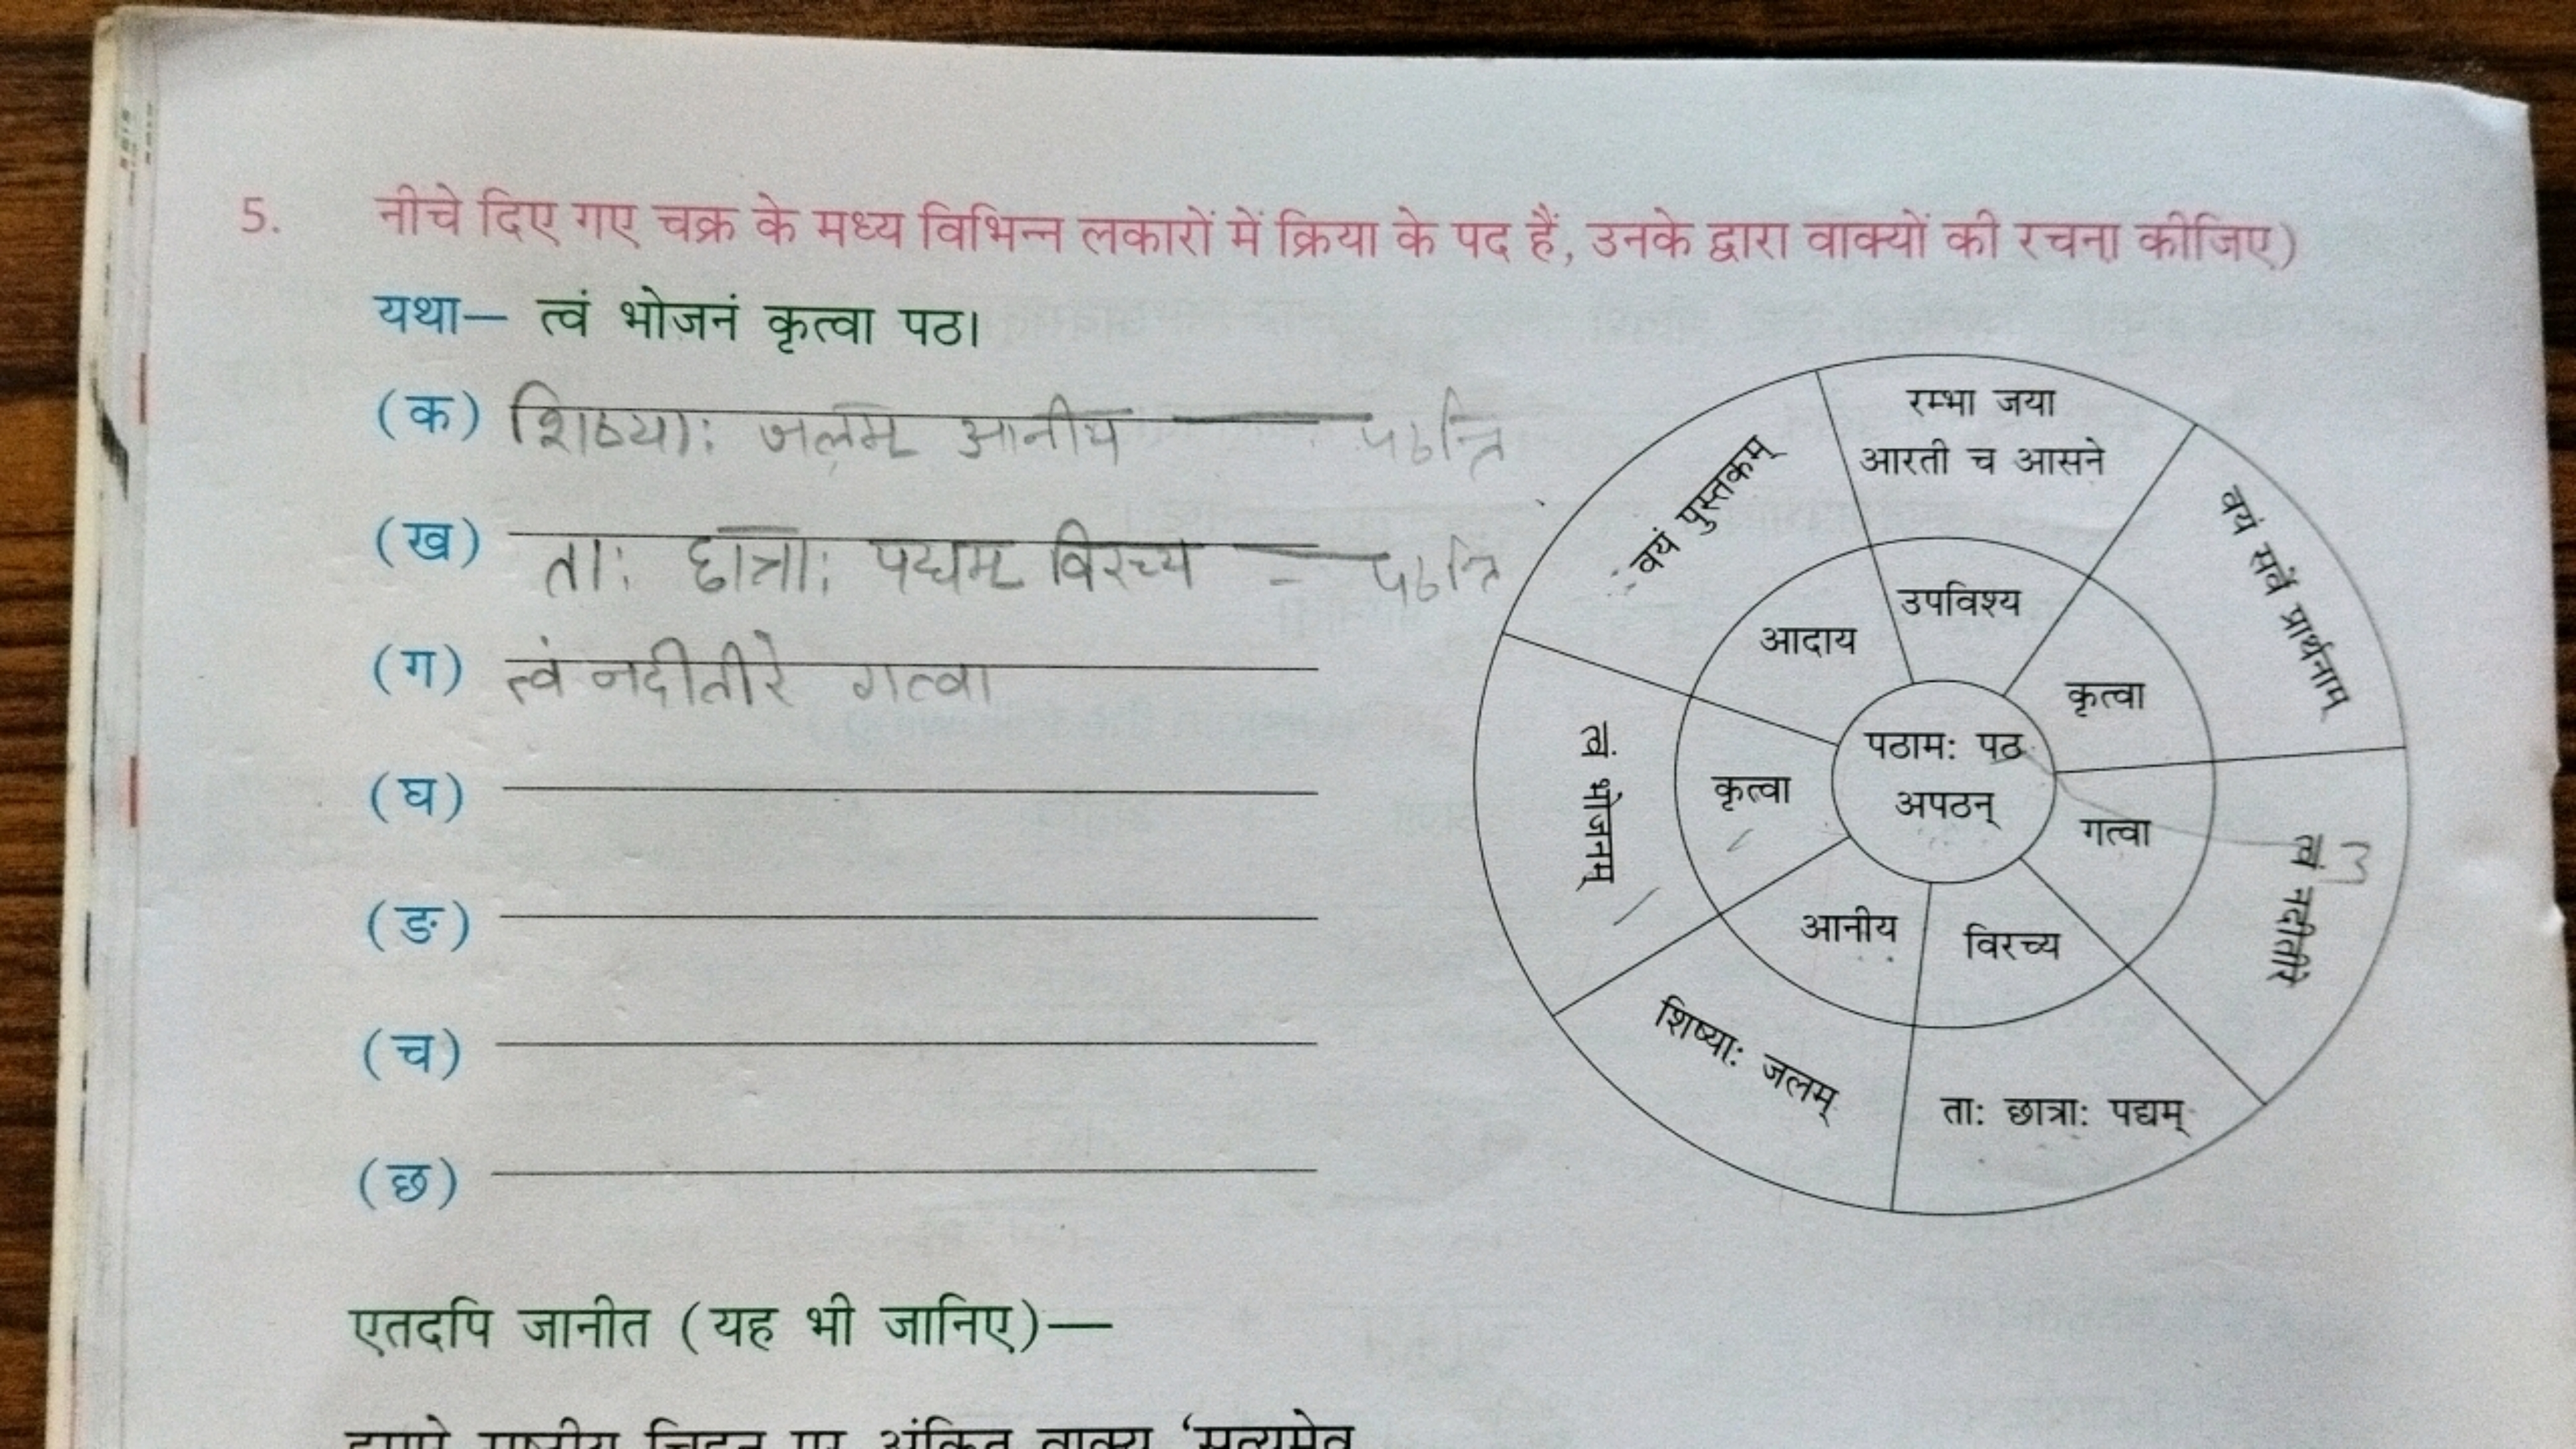 5. नीचे दिए गए चक्र के मध्य विभिन्न लकारों में क्रिया के पद हैं, उनके द्वारा वाक्यों की रचना कीजिए)
यथा— त्वं भोजनं कृत्वा पठ।
(क) शिष्या: जलम् आनीय — पठन्ति
(ख) ता: छात्रा: पद्यम् विरच्य — पठन्ति
(ग) त्वं नदीतीरे गत्वा
(घ)
(ङ)
(च)
(छ)
रम्भा जया
आरती च आसने
वयं सर्वे प्रार्थनाम्
त्वं नदीतीरे
ता: छात्रा: पद्यम्
शिष्या: जलम्
त्वं भोजनम्
वयं पुस्तकम्
उपविश्य
कृत्वा
गत्वा
विरच्य
आनीय
कृत्वा
आदाय
पठाम: पठ
अपठन्
एतदपि जानीत (यह भी जानिए)—
हमारे राष्ट्रीय चिह्न पर अंकित वाक्य ‘सत्यमेव